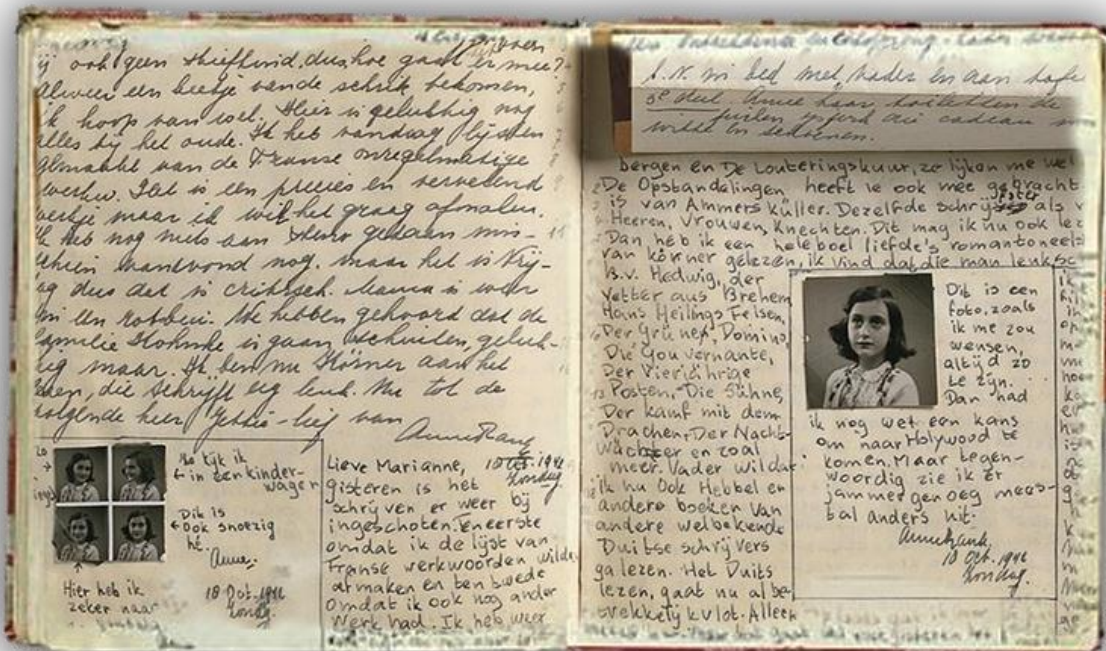 ij ook geen stiefkind, dus hoe gaat er mee?
Alweer een beetje van de schrik bekomen,
ik hoop van wel. Hier is gelukkig nog
alles bij het oude. Ik heb vandaag lijsten
gemaakt van de Franse onregelmatige
werkw. Dat is een precies en vervelend
werkje maar ik wil het graag afmaken.
Ik heb nog niets aan gedaan mis-
schien vanavond nog. maar het is Vrij-
ag dus dat is critisch. Mama is weer
We hebben gehoord dat de
familie is gaan geluk-
kig maar. Ik ben nu Körner aan het
lezen, die schrijft erg leuk. Nu tot de
volgende keer Jettie-lief van
Anne Frank
Zo kijk ik
in een kinder-
wagen
Dit is
ook snoezig
hé.
Anne.
Hier heb ik
zeker naar
18 Oct. 1942
Zondag.
Lieve Marianne, 18 Oct. 1942
Zondag.
gisteren is het
schrijven er weer bij
ingeschoten. Ten eerste
omdat ik de lijst van
Franse werkwoorden wilde
afmaken en ten twede
omdat ik ook nog ander
Werk had. Ik heb weer
in bed met vader en aan
3e deel. Anne haar toiletten de
cadeau
witte en schoenen.
bergen en De Louteringskuur, zo lijken me wel
De Opstandelingen heeft ie ook mee gebracht
is van Ammers Küller. Dezelfde schrijfster als v
Heeren, Vrouwen, Knechten. Dit mag ik nu ook lez
Dan heb ik een heleboel liefde's romantoneels
van körner gelezen, ik vind dat die man leuk sc
B.v. Hedwig, der
Vetter aus Brehem
Hans Heilings Felsen,
Der Grüne, Domino,
Die Gouvernante,
Der Vierjährige
Posten, Die Sühne,
Der kamf mit dem
Drachen, Der Nacht-
wächter en zoal
meer. Vader wil dat
ik nu Ook Hebbel en
andere boeken van
andere welbekende
Duitse schrijvers
ga lezen. Het Duits
lezen, gaat nu al be-
trekkelijk vlot. Alleen
Dit is een
foto, zoals
ik me zou
wensen,
altijd zo
te zijn.
Dan had
ik nog wel een kans
om naar Holywood te
komen. Maar tegen-
woordig zie ik er
jammer genoeg mees-
tal anders uit.
Annefrank.
18 Oct. 1942
Zondag.